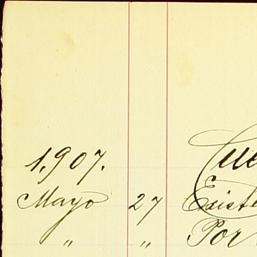 1,907.
Mayo 27 Existe
" " Por